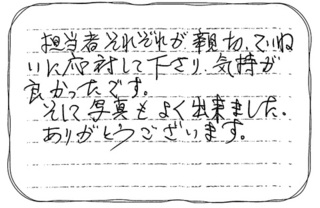 担当者それぞれが親切、ていね
いに応対して下さり、気持が
良かったです。
そして写真もよく出来ました。
ありがとうございます。